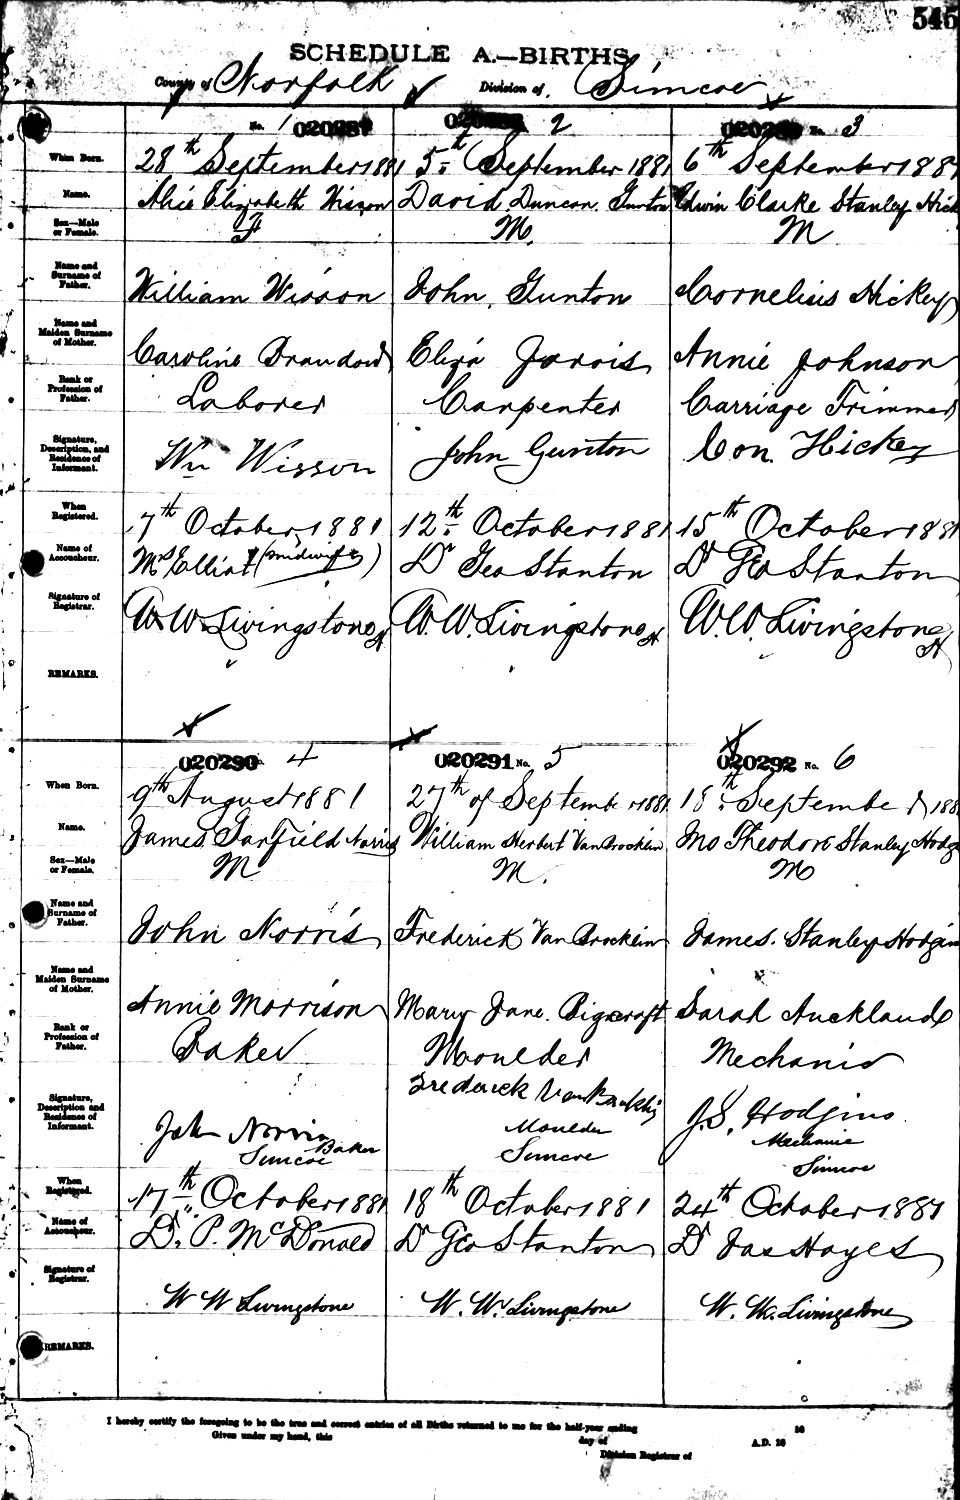 545
SCHEDULE A.—BIRTHS
County of Norfolk Division of Simcoe
No. 1 020287 2 No. 3
When Born. 28th September 1881 5th September 1881 6th September 1881
Name. Alice Elizabeth Wisson David Duncan Gunton Edwin Clarke Stanley Hick
Sex—Male or Female. F M. M
Name and Surname of Father. William Wisson John Gunton Cornelius Hickey
Name and Maiden Surname of Mother. Caroline Eliza Jarvis Annie Johnson
Rank or Profession of Father. Laborer Carpenter Carriage Trimmer
Signature, Description, and Residence of Informant. Wm Wisson John Gunton Con. Hickey
When Registered. 7th October 1881 12th October 1881 15th October 1881
Name of Accoucheur. Mrs Elliot (midwife) Dr Geo Stanton Dr Geo Stanton
Signature of Registrar. W. W. Livingstone W. W. Livingstone W. W. Livingstone
REMARKS.
020290 4 020291 No. 5 020292 No. 6
When Born. 9th August 1881 27th of September 1881 18th September 188
Name. James Garfield Norris William Herbert VanBrocklin Jno Theodore Stanley Hodg
Sex—Male or Female. M M. M
Name and Surname of Father. John Norris Frederick Van Brocklin James Stanley Hodgin
Name and Maiden Surname of Mother. Annie Morrison Mary Jane Sarah Auckland
Rank or Profession of Father. Baker Moulder Mechanic
Signature, Description and Residence of Informant. John Norris Baker Simcoe Frederick VanBrocklin Moulder Simcoe J. S. Hodgins Mechanic Simcoe
When Registered. 17th October 1881 18th October 1881 24th October 1881
Name of Accoucheur. Dr. P. McDonald Dr Geo Stanton Dr Jas Hayes
Signature of Registrar. W W Livingstone W. W. Livingstone W. W. Livingstone
REMARKS.
I hereby certify the foregoing to be the true and correct entries of all Births returned to me for the half-year ending 18
Given under my hand, this day of A.D. 18
Division Registrar of